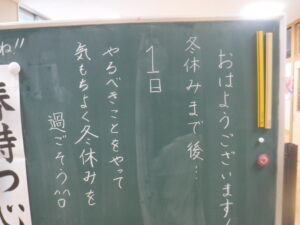 おはようございます!
冬休みまで後…
1日
やるべきことをやって
気もちよく冬休みを
過ごそう
ね!!
春待つ心